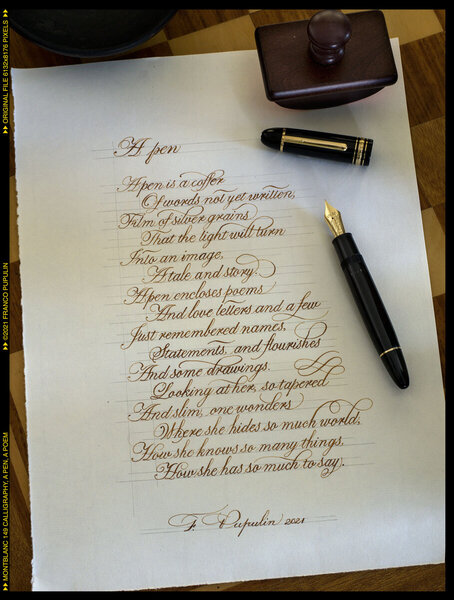 A pen
A pen is a coffer
Of words not yet written,
Film of silver grains
That the light will turn
Into an image,
A tale and story.
A pen encloses poems
And love letters and a few
Just remembered names,
Statements, and flourishes
And some drawings.
Looking at her, so tapered
And slim, one wonders
Where she hides so much world,
How she knows so many things.
How she has so much to say.
F. Pupulin 2021
MONTBLANC 149 CALLIGRAPHY, A PEN, A POEM
©2021 FRANCO PUPULIN
ORIGINAL FILE 6132x8176 PIXELS